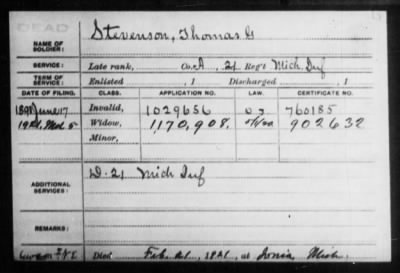 DEAD
NAME OF SOLDIER: Stevenson, Thomas G
SERVICE: Late rank, Co. A, 21 Reg't Mich. Inf
TERM OF SERVICE: Enlisted , 1 Discharged , 1
DATE OF FILING. CLASS. APPLICATION NO. LAW. CERTIFICATE NO.
1891 June 17 Invalid, 1029656 760185
Widow, 1,170,908. 902632
Minor,
ADDITIONAL SERVICES: D. 21 Mich Inf
REMARKS:
Died Feb. 21, at Ionia, Mich.